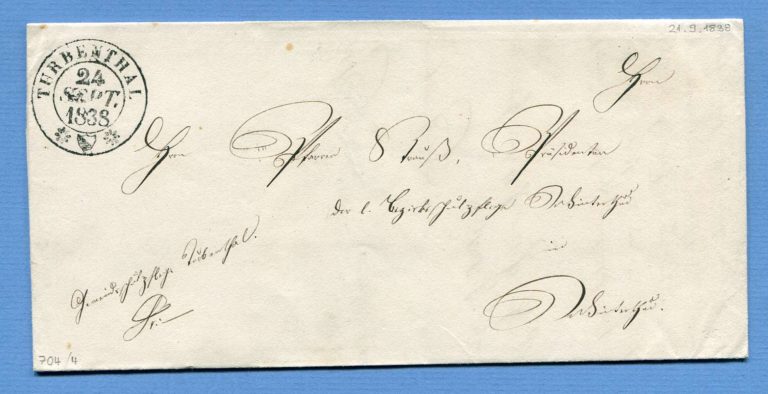 21.9.1838
TURBENTHAL
24
SEPT.
1838
Herrn
Herrn Pfarrer Strauß, Präsidenten
der l. Bezirksschulpflege Winterthur
in
Winterthur.
Gemeindschulpflege Turbenthal.
704/4